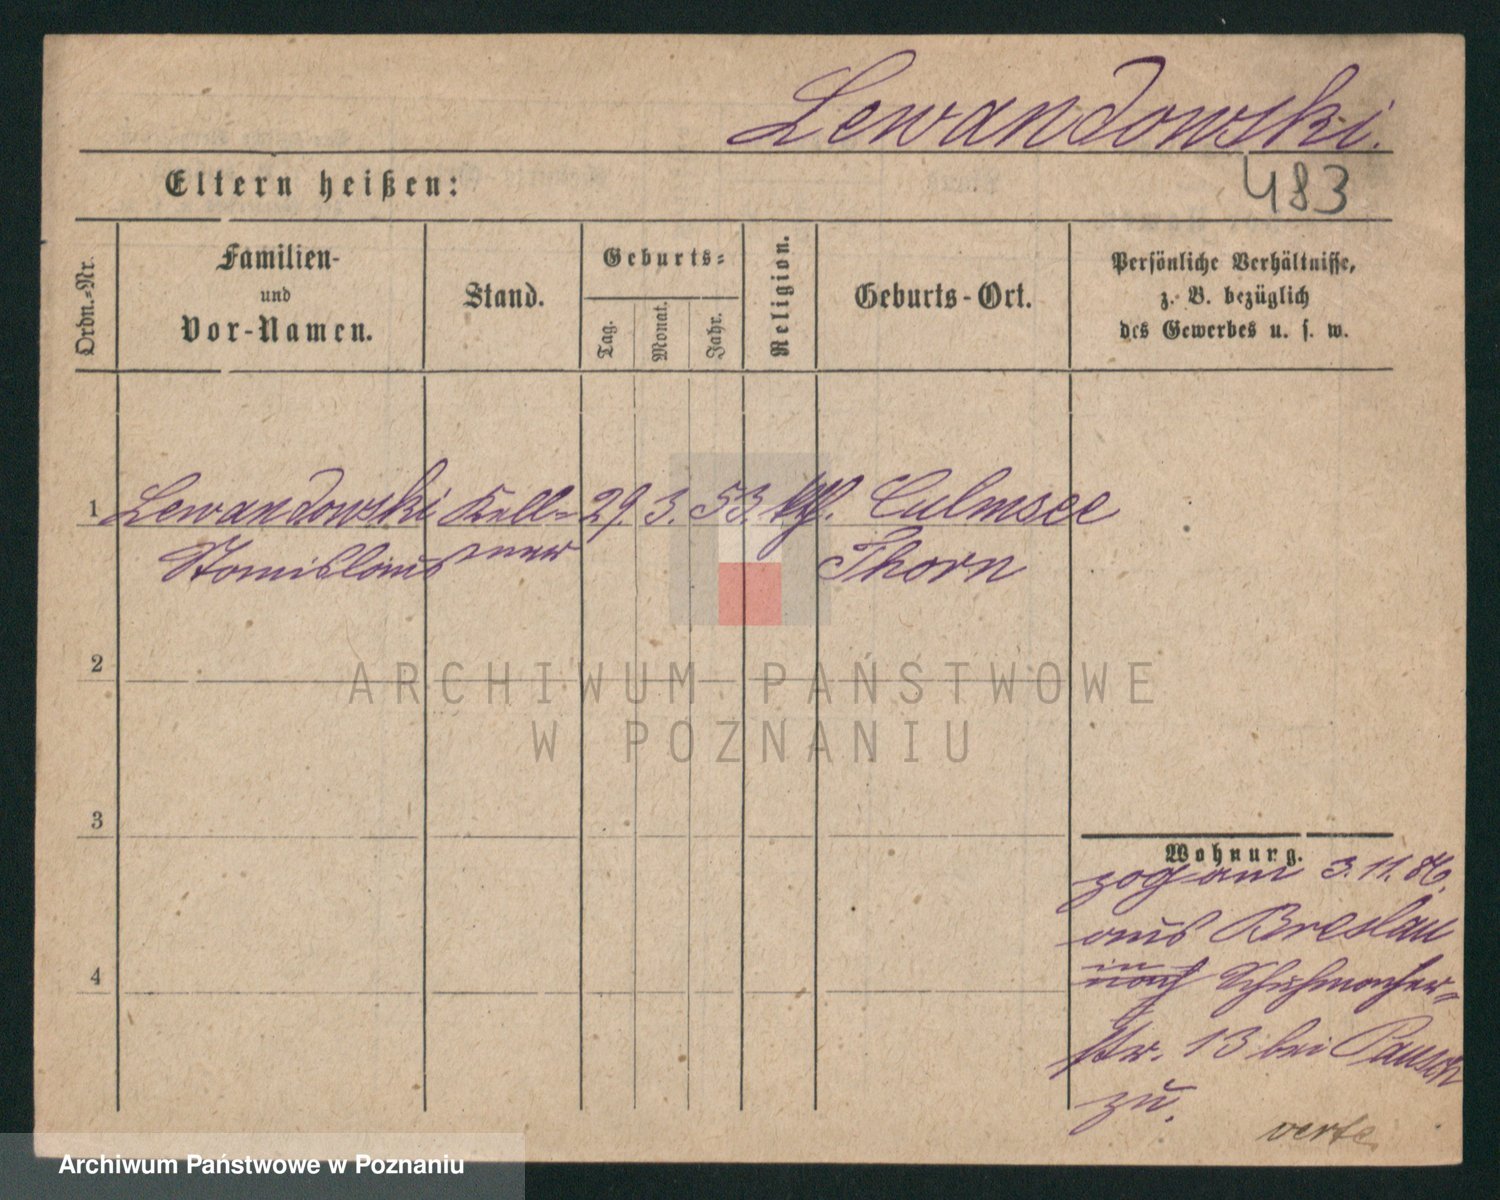 Lewandowski.
Eltern heißen:
483
Ordn.-Nr.
Familien-
und
Vor-Namen.
Stand.
Geburts-
Tag.
Monat.
Jahr.
Religion.
Geburts-Ort.
Persönliche Verhältnisse,
z. B. bezüglich
des Gewerbes u. s. w.
1 Lewandowski Kell- 29. 3. 53. kth. Culmsee
Stanislaus ner Thorn
2
ARCHIWUM PAŃSTWOWE
W POZNANIU
3
Wohnung.
zog am 3. 11. 86.
aus Breslau
in
nach Schuhmacher-
str. 13 bei Pausch
zu.
4
verte
Archiwum Państwowe w Poznaniu